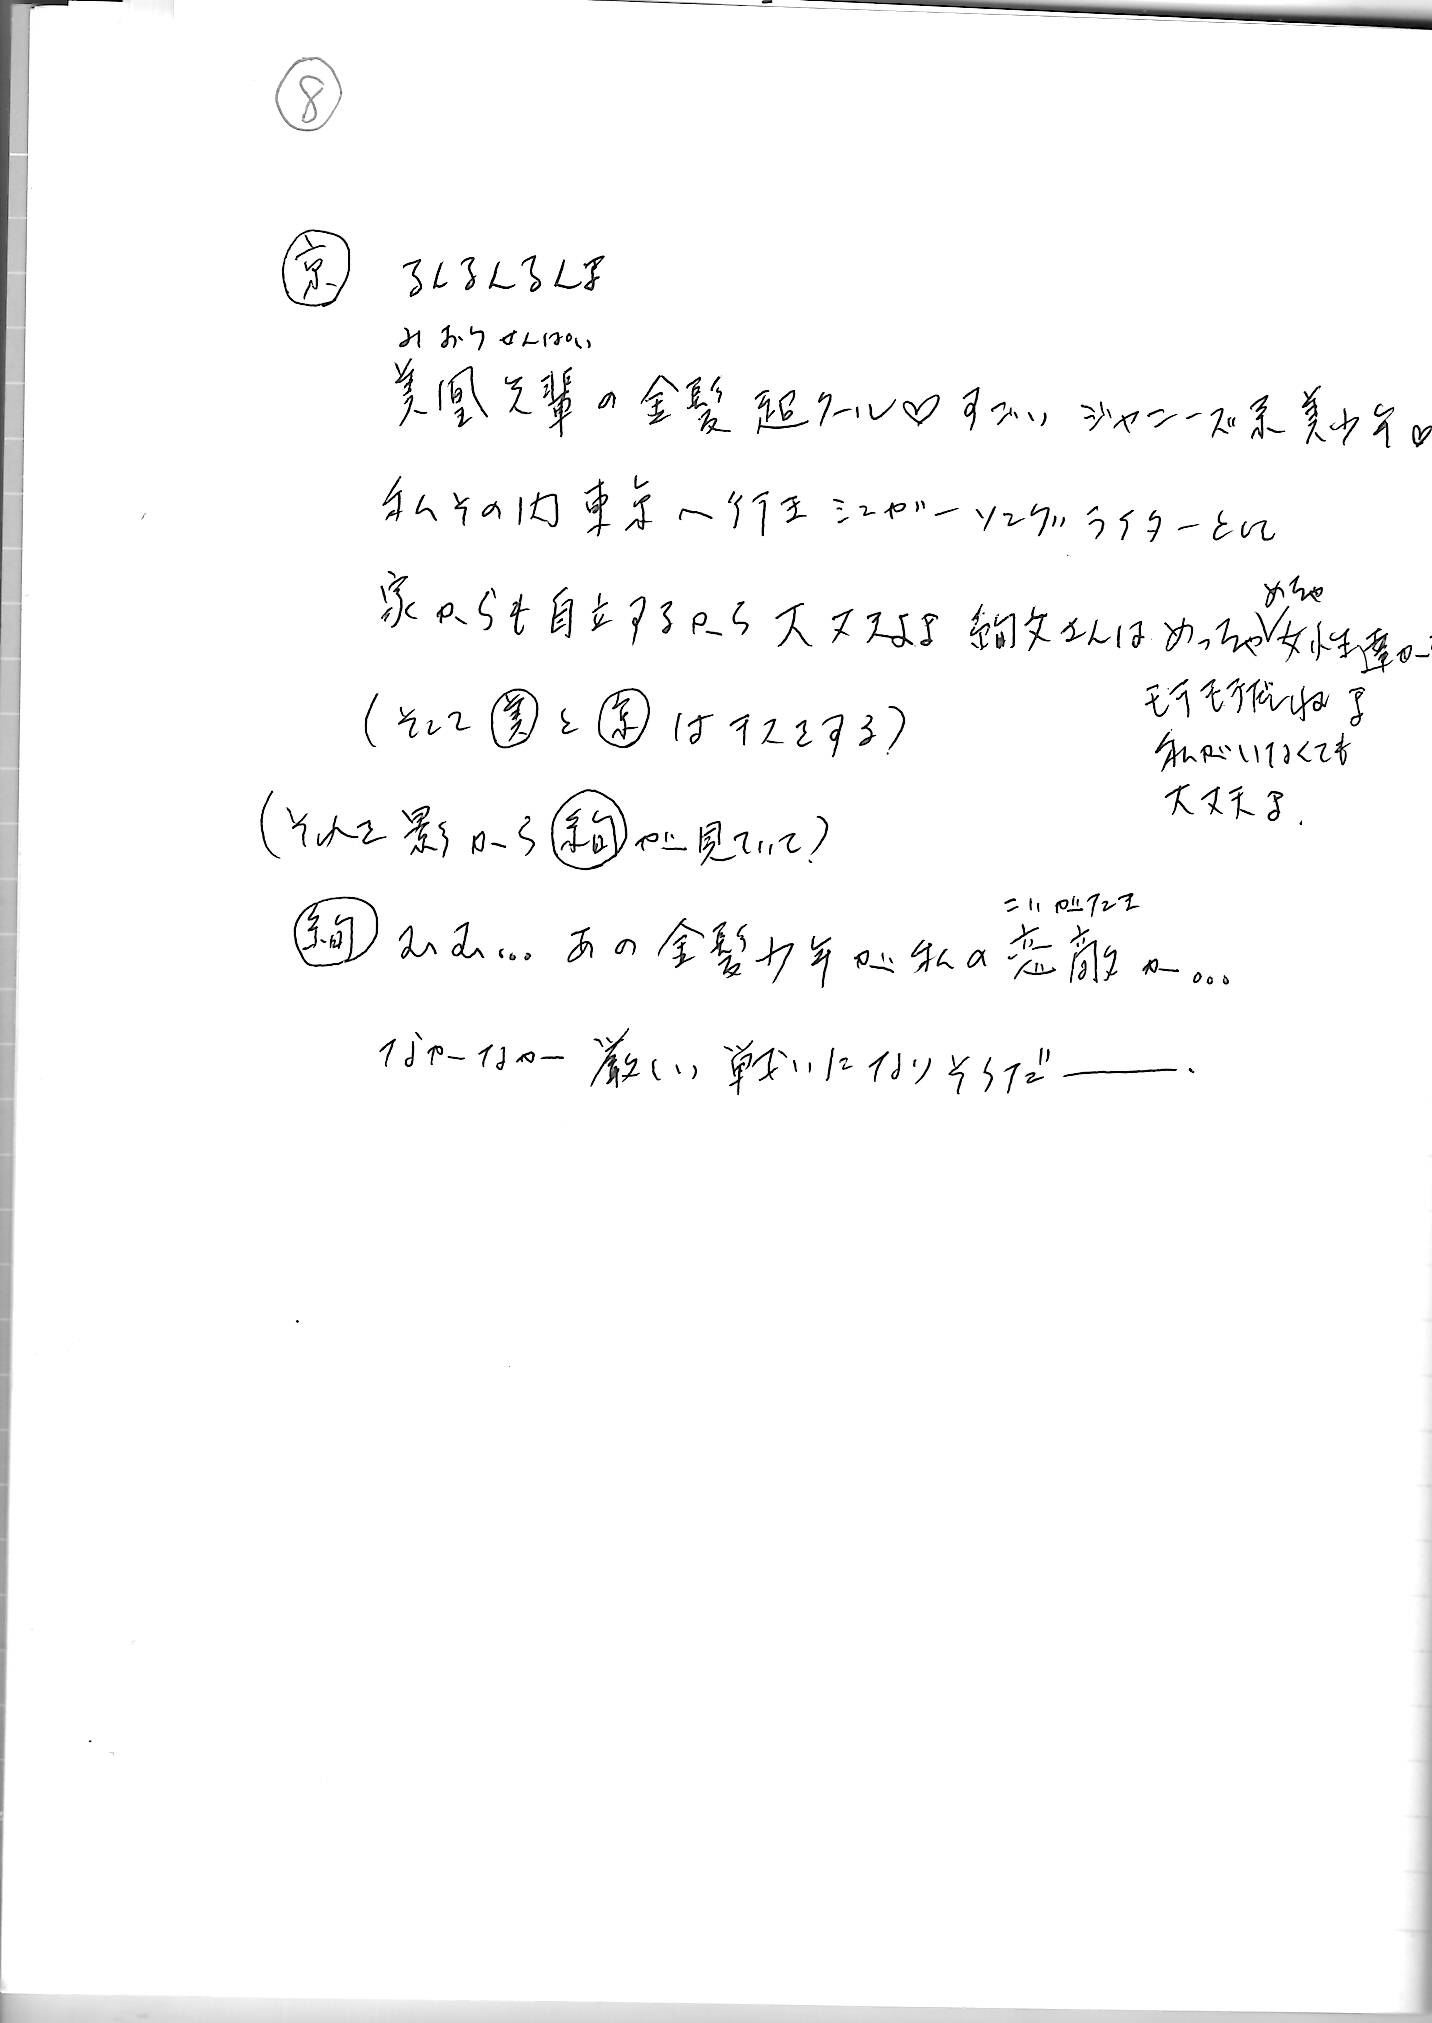 ⑧
京 るんるんるん♪
みおうせんぱい
美凰先輩の金髪超クール♡すごいジャニーズ系美少年♡
私その内東京へ行きシンガーソングライターとして
めちゃ
家からも自立するから大丈夫よ♪ 絢文さんはめっちゃ女性達から
モテモテだしね♪
私がいなくても
大丈夫よ.
(そして美と京はキスをする)
(それを影から絢が見ていて)
こいがたき
絢 むむ… あの金髪少年が私の恋敵か…
なかなか厳しい戦いになりそうだ――.